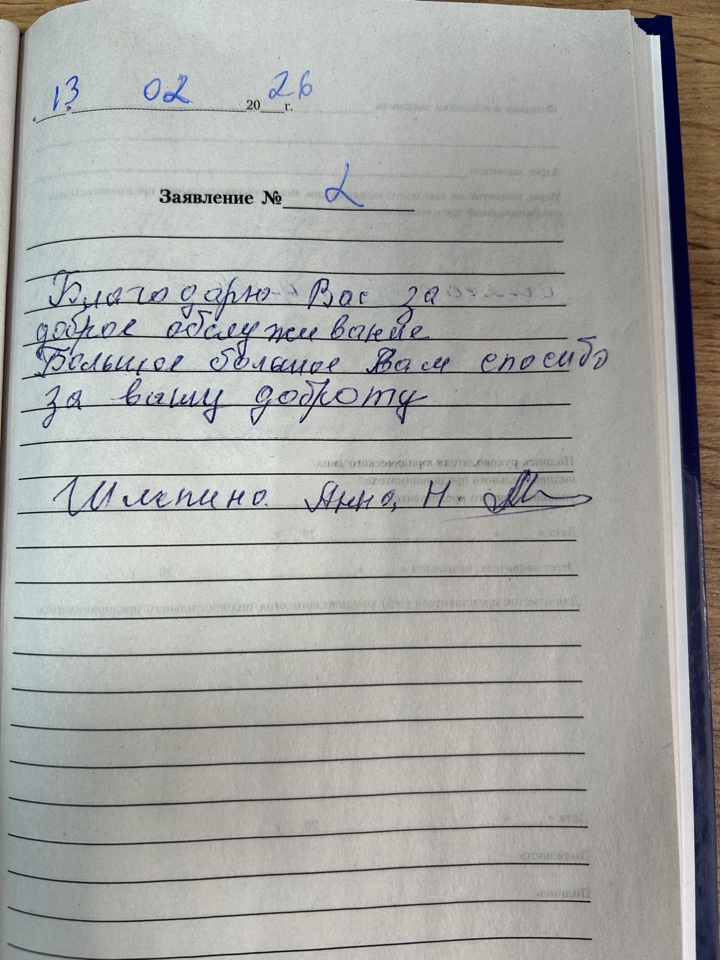 13 02 2026 г.
Заявление № 2
Благодарю Вас за
доброе обслуживание
Большое большое Вам спосибо
за вашу доброту
Шлепина Анна Н.